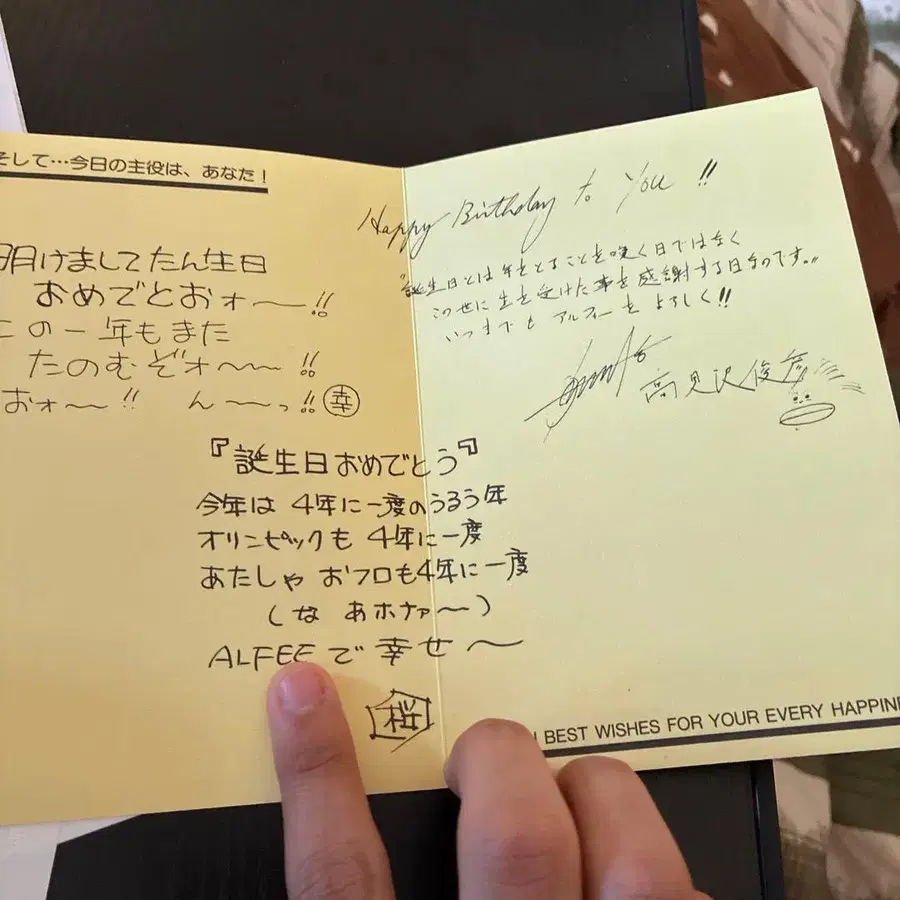 そして…今日の主役は、あなた！
明けましてたん生日
おめでとおォ〜!!
この一年もまた
たのむぞォ〜〜!!
おォ〜!! ん〜〜っ!! 幸
Happy Birthday to You !!
"誕生日とは年をとることを嘆く日ではなく
この世に生を受けた事を感謝する日なのです。"
いつまでも アルフィーを よろしく!!
高見沢俊彦
『誕生日おめでとう』
今年は 4年に一度のうるう年
オリンピックも 4年に一度
あたしゃ おフロも4年に一度
(な あホナァ〜)
ALFEEで幸せ〜
桜
BEST WISHES FOR YOUR EVERY HAPPINE